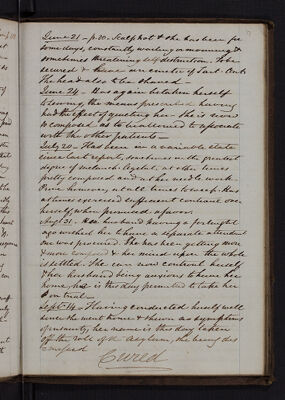 June 21 - p.20 - Scalp hot & she has been for
some days, constantly wailing or moaning &
sometimes threatening self destruction. To be
secured & have an emetic of Tart. Ant.
The head also to be shaved -
June 24. - Has again betaken herself
to sewing, the means prescribed having
had the effect of quieting her. She is now
so composed as to be allowed to associate
with the other patients -
July 20 - Has been in a variable state
since last report, sometimes in the greatest
degree of melancholy at other times
pretty composed and at her needle work.
She however, at all times to weep. Has
at times exercised sufficient control over
herself, when promised a favor.
Augt 31. - Her husband having a fortnight
ago wished her to have a separate attendant
one was procured. She has been getting more
& more composed & her mind upon the whole
is settled. She can now control herself
& her husband being anxious to have her
home, he is this day permitted to take her
on trial -
Septr 14 - Having conducted herself well
since she went home & shewn no symptoms
of insanity, her name is this day taken
off the roll of the Asylum, she being dis
missed
Cured